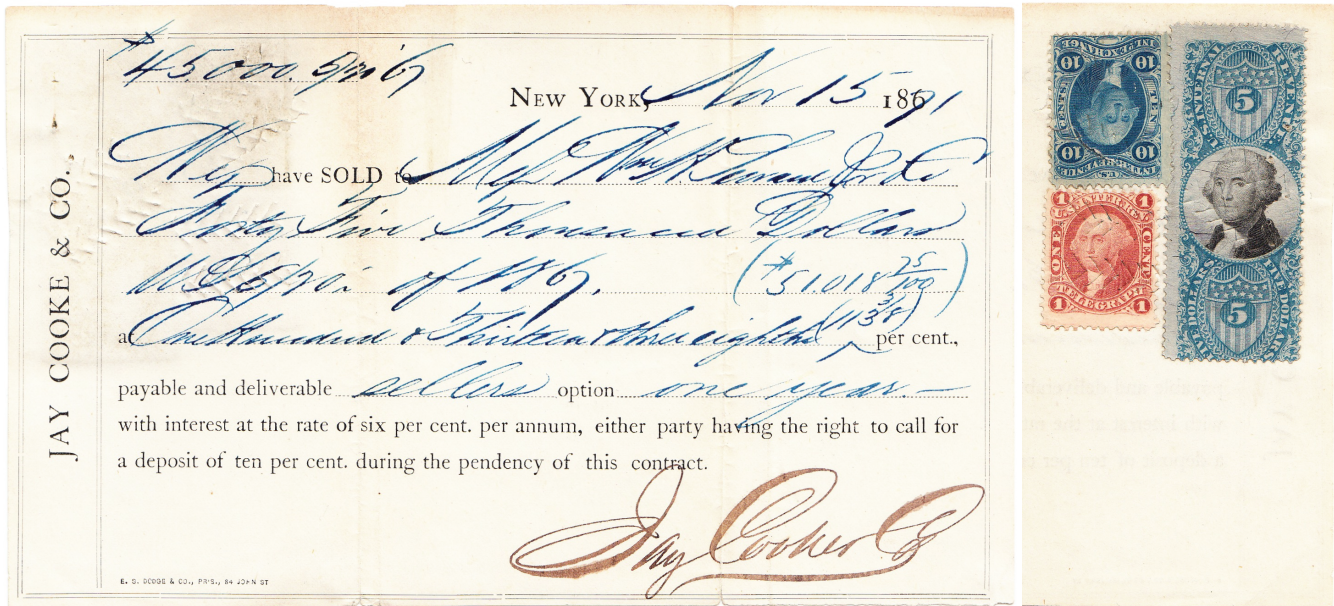 $45000. 5/20 '67
NEW YORK, Nov 15 1871
We have SOLD to Wm H
Forty Five Thousand Dollars
of 1867. ($51.018 25/100)
a One Hundred & Thirteen & three eighths (113 3/8) per cent.,
payable and deliverable sellers option one year.—
with interest at the rate of six per cent. per annum, either party having the right to call for
a deposit of ten per cent. during the pendency of this contract.
Jay Cooke & Co
E. S. DODGE & CO., PR'S., 84 JOHN ST
JAY COOKE & CO.
INT. EXCHANGE
10 10
TEN CENTS
10 10
U.S. INTER. REV.
1 1
ONE CENT
TELEGRAPH
1 1
U.S. INTERNAL REVENUE
5
5
FIVE DOLLARS